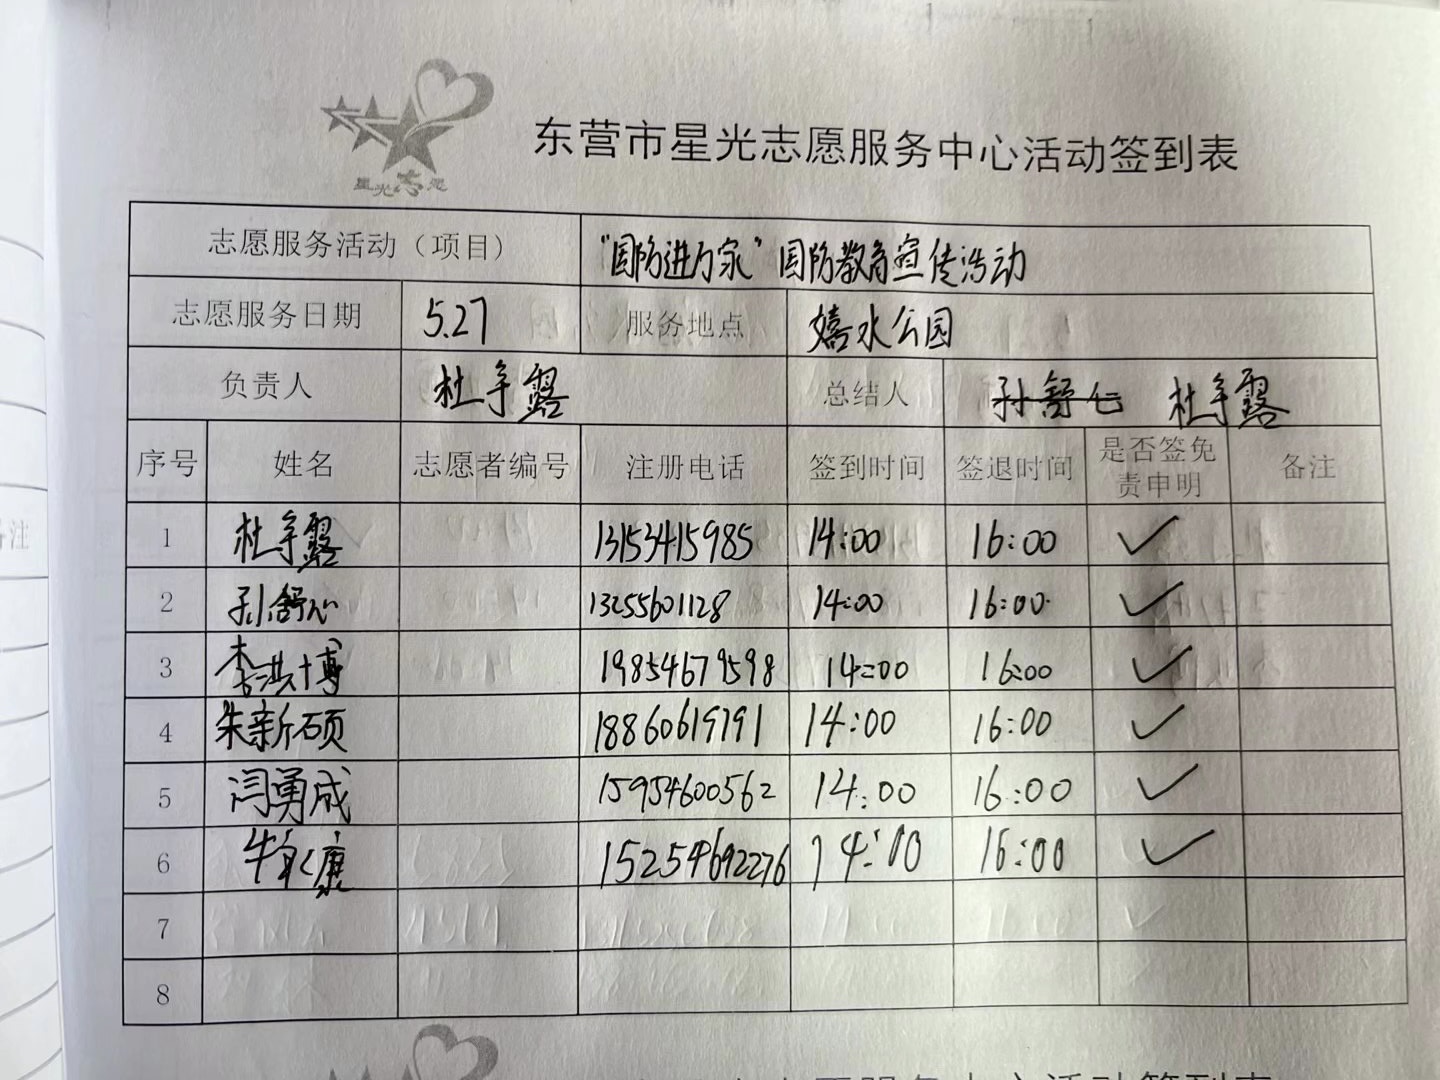 星光志愿
东营市星光志愿服务中心活动签到表
志愿服务活动（项目） “国防进万家”国防教育宣传活动
志愿服务日期 5.27 服务地点 嬉水公园
负责人 杜予露 总结人 孙舒心 杜予露
序号 姓名 志愿者编号 注册电话 签到时间 签退时间 是否签免责申明 备注
1 杜予露 13153415985 14:00 16:00 ✓
2 孙舒心 13255601128 14:00 16:00 ✓
3 李洪博 19854679598 14:00 16:00 ✓
4 朱新硕 18860619791 14:00 16:00 ✓
5 闫勇成 15954600562 14:00 16:00 ✓
6 牛 康 15254692276 14:00 16:00 ✓
7
8
备注